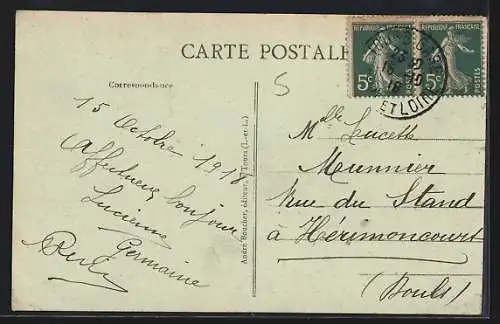 CARTE POSTALE
Correspondance
15 Octobre 1918
Affectueux bonjour
Lucienne
Germaine
André Boucher, éditeur, Tours (I.-et-L.)
5
RÉPUBLIQUE FRANÇAISE
5c POSTES
RÉPUBLIQUE FRANÇAISE
5c POSTES
ET LOIRE
Mlle Lucette
Meunnier
Rue du Stand
à Hérimoncourt
(Doubs)